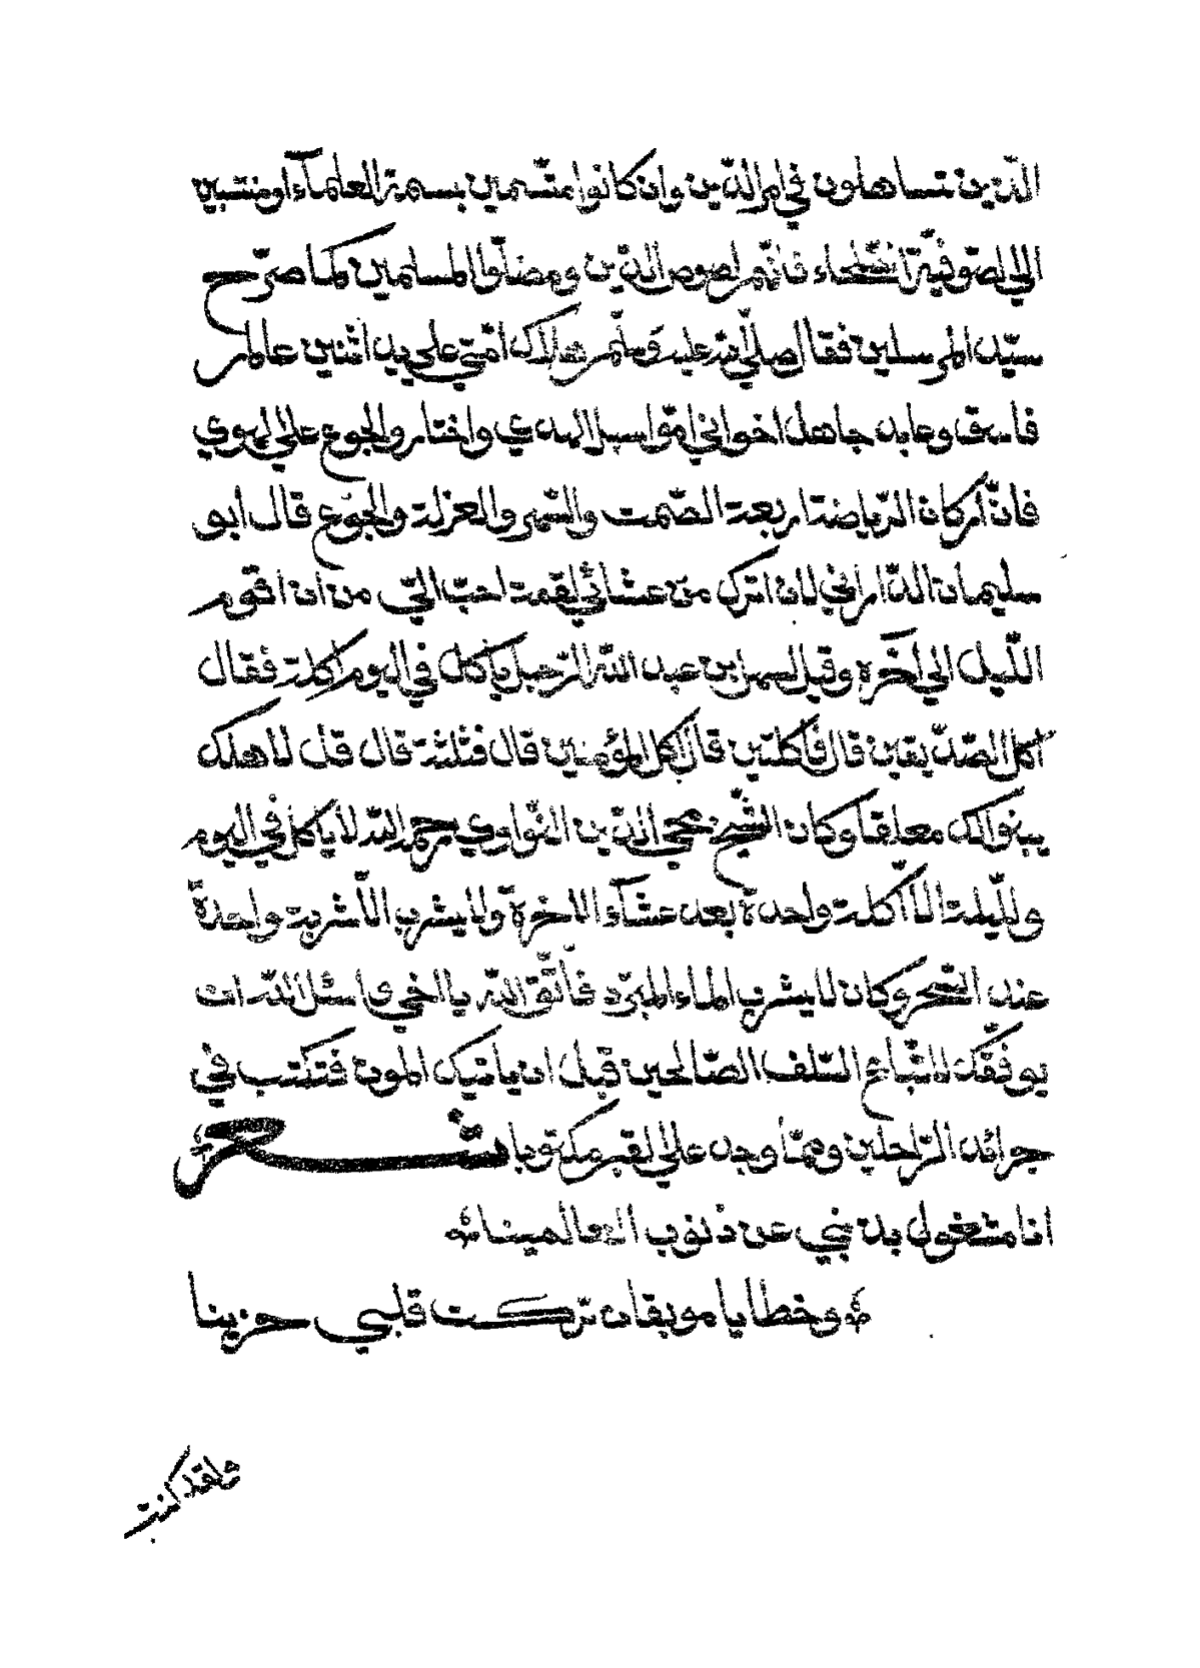 الّذين تساهلون في امر الدّين وان كانوا متّسمين بسمة العلمآء او منتسبين
الي الصّوفيّة الصّلحاء فانّهم لصوص الدّين ومضلّوا المسلمين كما صرّح
سيّد المرسلين فقال صلّي الله عليه وسلّم هلاك امّتي علي يد اثنين عالم
فاسق وعابد جاهل اخواني امّوا سبل الهدي واختاروا الجوع علي الهوي
فانّ اركان الرّياضة اربعة الصّمت والسّهر والعزلة والجوع قال ابو
سليمان الدّاراني لان اترك من عشائي لقمة احبّ اليّ من ان اقوم
اللّيل الي آخره وقيل لسهل بن عبد الله الرّجل يأكل في اليوم اكلة فقال
اكل الصّدّيقين قال فأكلتين قال اكل المؤمنين قال فثلثة قال قل لاهلك
يبنوا لك معلفا وكان الشّيخ محي الدّين النّواوي رحمه الله لا ياكل في اليوم
واللّيلة الّا اكلة واحدة بعد عشآء الاخرة ولا يشرب الّا شربة واحدة
عند السّحر وكان لا يشرب الماء المبرّد فاتّق الله يا اخي واسئل الله ان
يوفّقك لاتّباع السّلف الصّالحين قبل ان يأتيك الموت فتكتب في
جرائد الرّاحلين وممّا وجد علي القبر مكتوبا شعر
انا مشغول بذنبي عن ذنوب العالمينا
وخطايا موبقات تركت قلبي حزينا
ولقد كنت